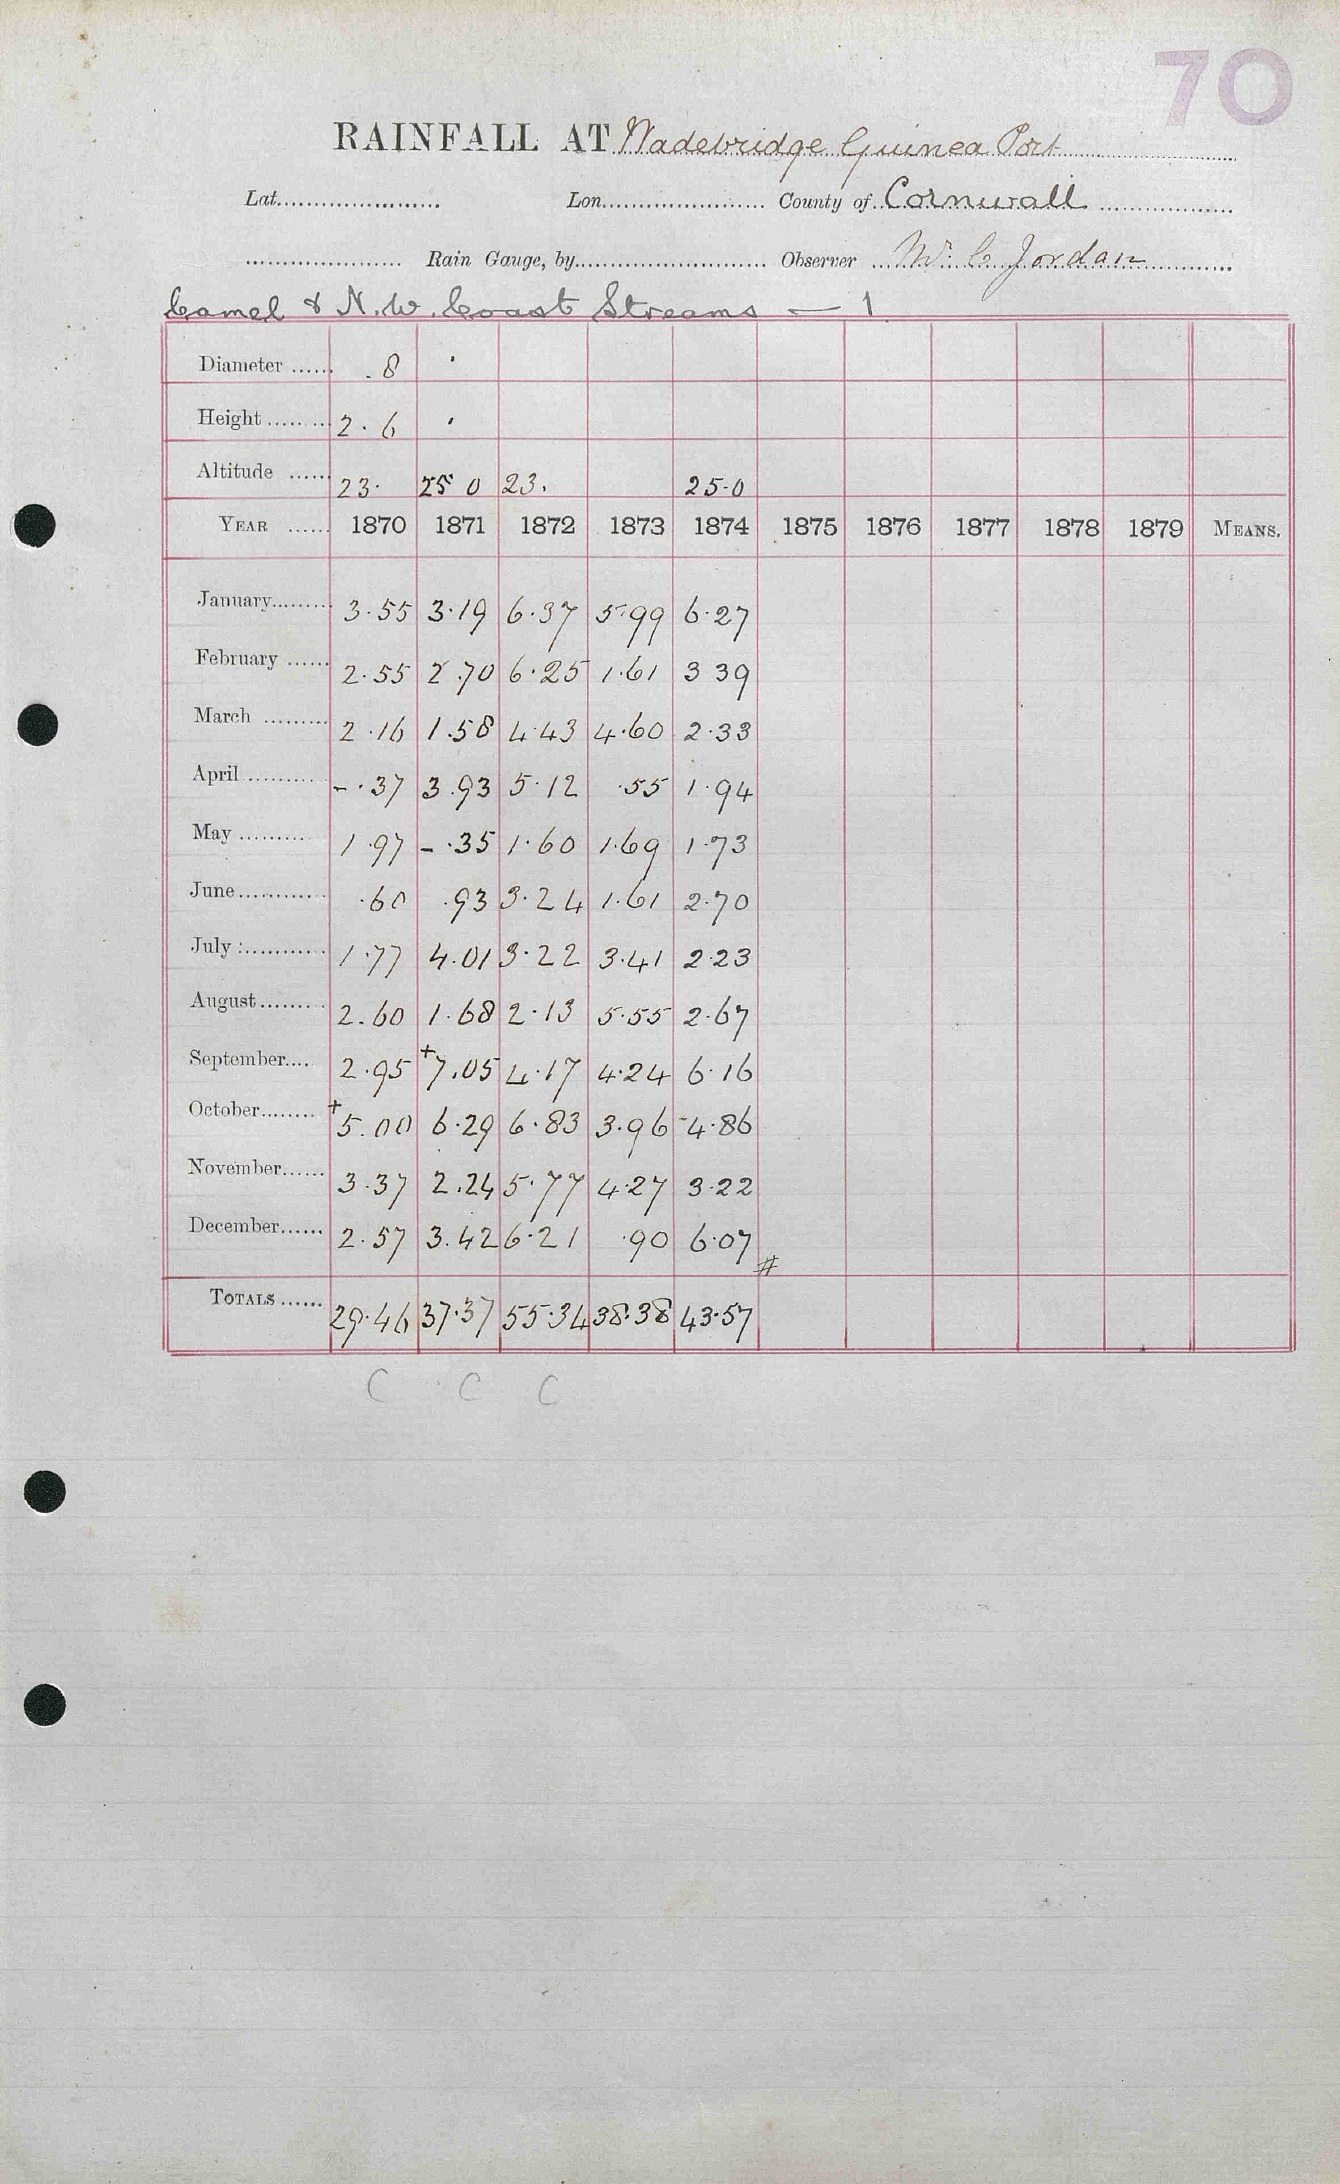 70
RAINFALL AT Wadebridge Guinea Port
Lat. Lon. County of Cornwall
Rain Gauge, by Observer W. C. Jordan
Camel & N.W. Coast Streams — 1
Diameter 8 '
Height 2.6 '
Altitude 23. 25 0 23. 25.0
YEAR 1870 1871 1872 1873 1874 1875 1876 1877 1878 1879 MEANS.
January 3.55 3.19 6.37 5.99 6.27
February 2.55 2.70 6.25 1.61 3 39
March 2.16 1.58 4.43 4.60 2.33
April -.37 3.93 5.12 .55 1.94
May 1.97 -.35 1.60 1.69 1.73
June .60 .93 3.24 1.61 2.70
July 1.77 4.01 3.22 3.41 2.23
August 2.60 1.68 2.13 5.55 2.67
September 2.95 +7.05 4.17 4.24 6.16
October +5.00 6.29 6.83 3.96 4.86
November 3.37 2.24 5.77 4.27 3.22
December 2.57 3.42 6.21 .90 6.07 #
TOTALS 29.46 37.37 55.34 38.38 43.57
C C C